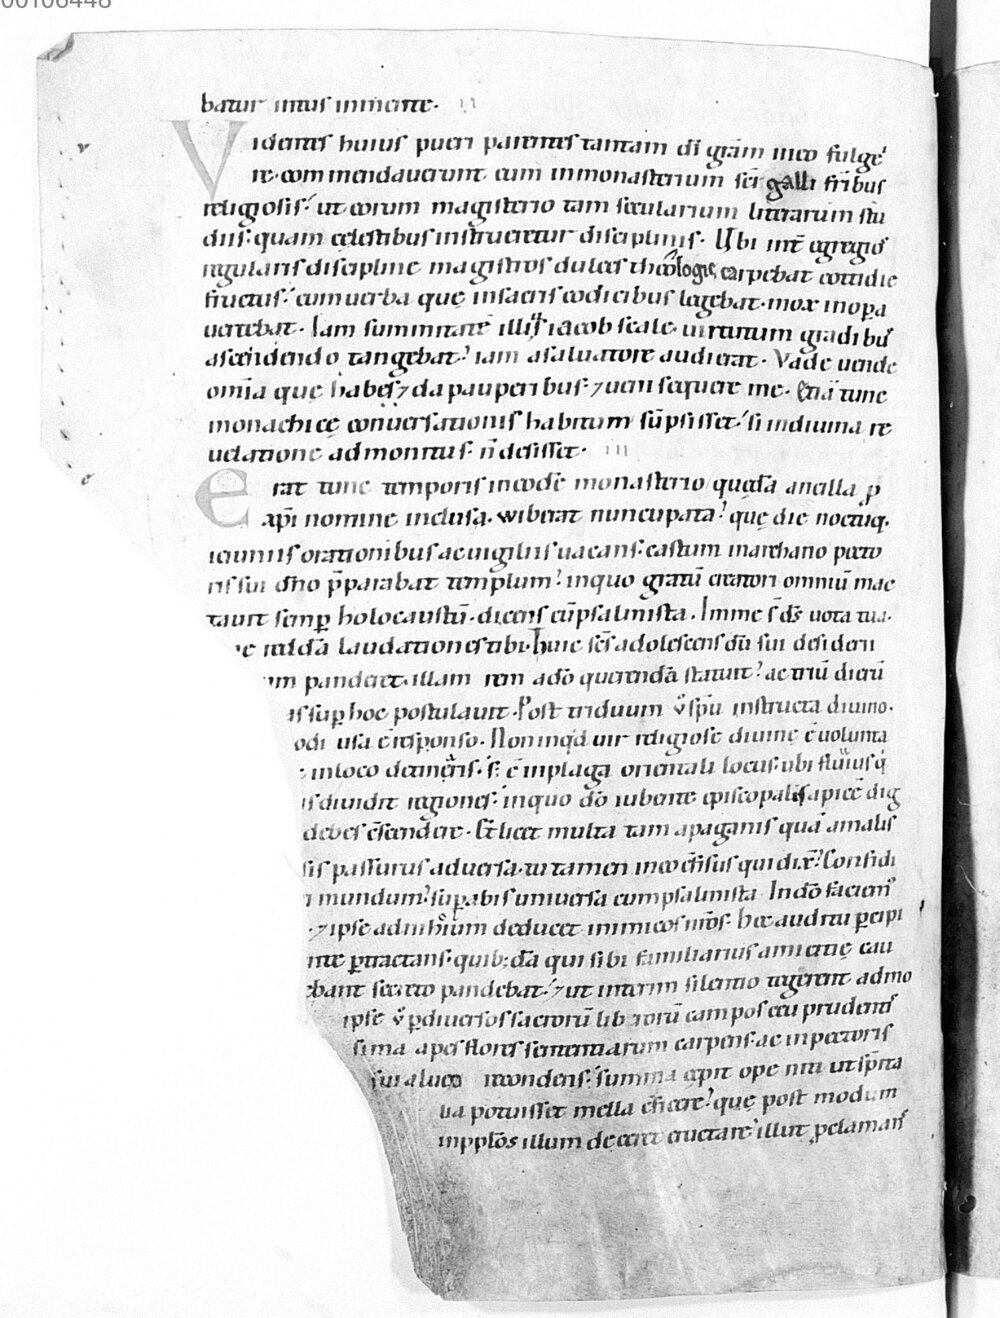 00106448
batur intus inmente. II
Videntes huius pueri parentes tantam dī grām ineo fulge
re. commendauerunt eum inmonasterium scī galli frībus
religiosis. ut eorum magisterio tam secularium literarum stu
diis: quam celestibus instrueretur disciplinis. Ubi int̄ egregios
regularis discipline magistros dulces theologię carpebat cottidie
fructus. cum uerba quę insacris codicibus legebat. mox inopa
uertebat. Iam summitatē illius iacob scale. uirtutum gradibus
ascendendo tangebat? iam asaluatore audierat. Vade uende
om̄ia quę habes ⁊ da pauperibus: ⁊ ueni sequere me. Etiā tunc
monachicę conuersationis habitum sūpsisset. si indiuina re
uelatione admonitus. n̄ desisset. III
Erat tunc temporis ineodē monasterio quęsā ancilla p
xp̄i nomine inclusa. wiberat nuncupata? quę die noctuq.
ieiuniis orationibus ac uigiliis uacans: castum inarchano pecto
ris sui dn̄o p̄parabat templum? inquo gratū creatori omniū mac
tauit semp holocaustū. dicens cū psalmista. Inme s̄ ds̄ uota tua.
reddā laudationes tibi. Huic scs̄ adolescens dū sui desiderii
panderet. illam rem adō querendā statuit? ac triū dierū
sup hoc postulauit. Post triduum ū sp̄u instructa diuino.
odi usa ē responso. Non inqd uir religiose diuinę ē uolunta
inloco ... s; ē inplaga orientali locus. ubi fluuius q
diuidit regiones. inquo dō iubente episcopalis apicē dig
debes c̄scendere. Et licet multa tam apaganis quā amalis
sis passurus aduersa. tu tamen ineo c̄fisus qui dix̄? Confidi
mundum? supabis uniuersa cum psalmista. Indō faciem
⁊ ipse adnihilum deducet inimicos nros. Hec auditu pcipi
nte ptractans: quib; dā qui sibi familiarius amicitię cau
ebant secreto pandebat. ⁊ ut interim silentio tegerent admo
ipse ū p diuersos sacrorū librorū campos ceu prudentis
sima apes flores sententiarum carpens. ac inpectoris
sui alueo recondens. summa cepit ope niti ut sp̄ita
lia potuisset mella c̄ficere? quę post modum
inpplos illum deceret eructare illut pclamans